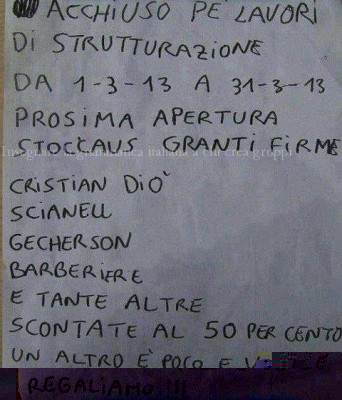 ACCHIUSO PE LAVORI
DI STRUTTURAZIONE
DA 1-3-13 A 31-3-13
PROSIMA APERTURA
STOCCAUS GRANTI FIRME
CRISTIAN DIO'
SCIANELL
GECHERSON
BARBERIERE
E TANTE ALTRE
SCONTATE AL 50 PER CENTO
UN ALTRO È POCO E
REGALIAMO !!!